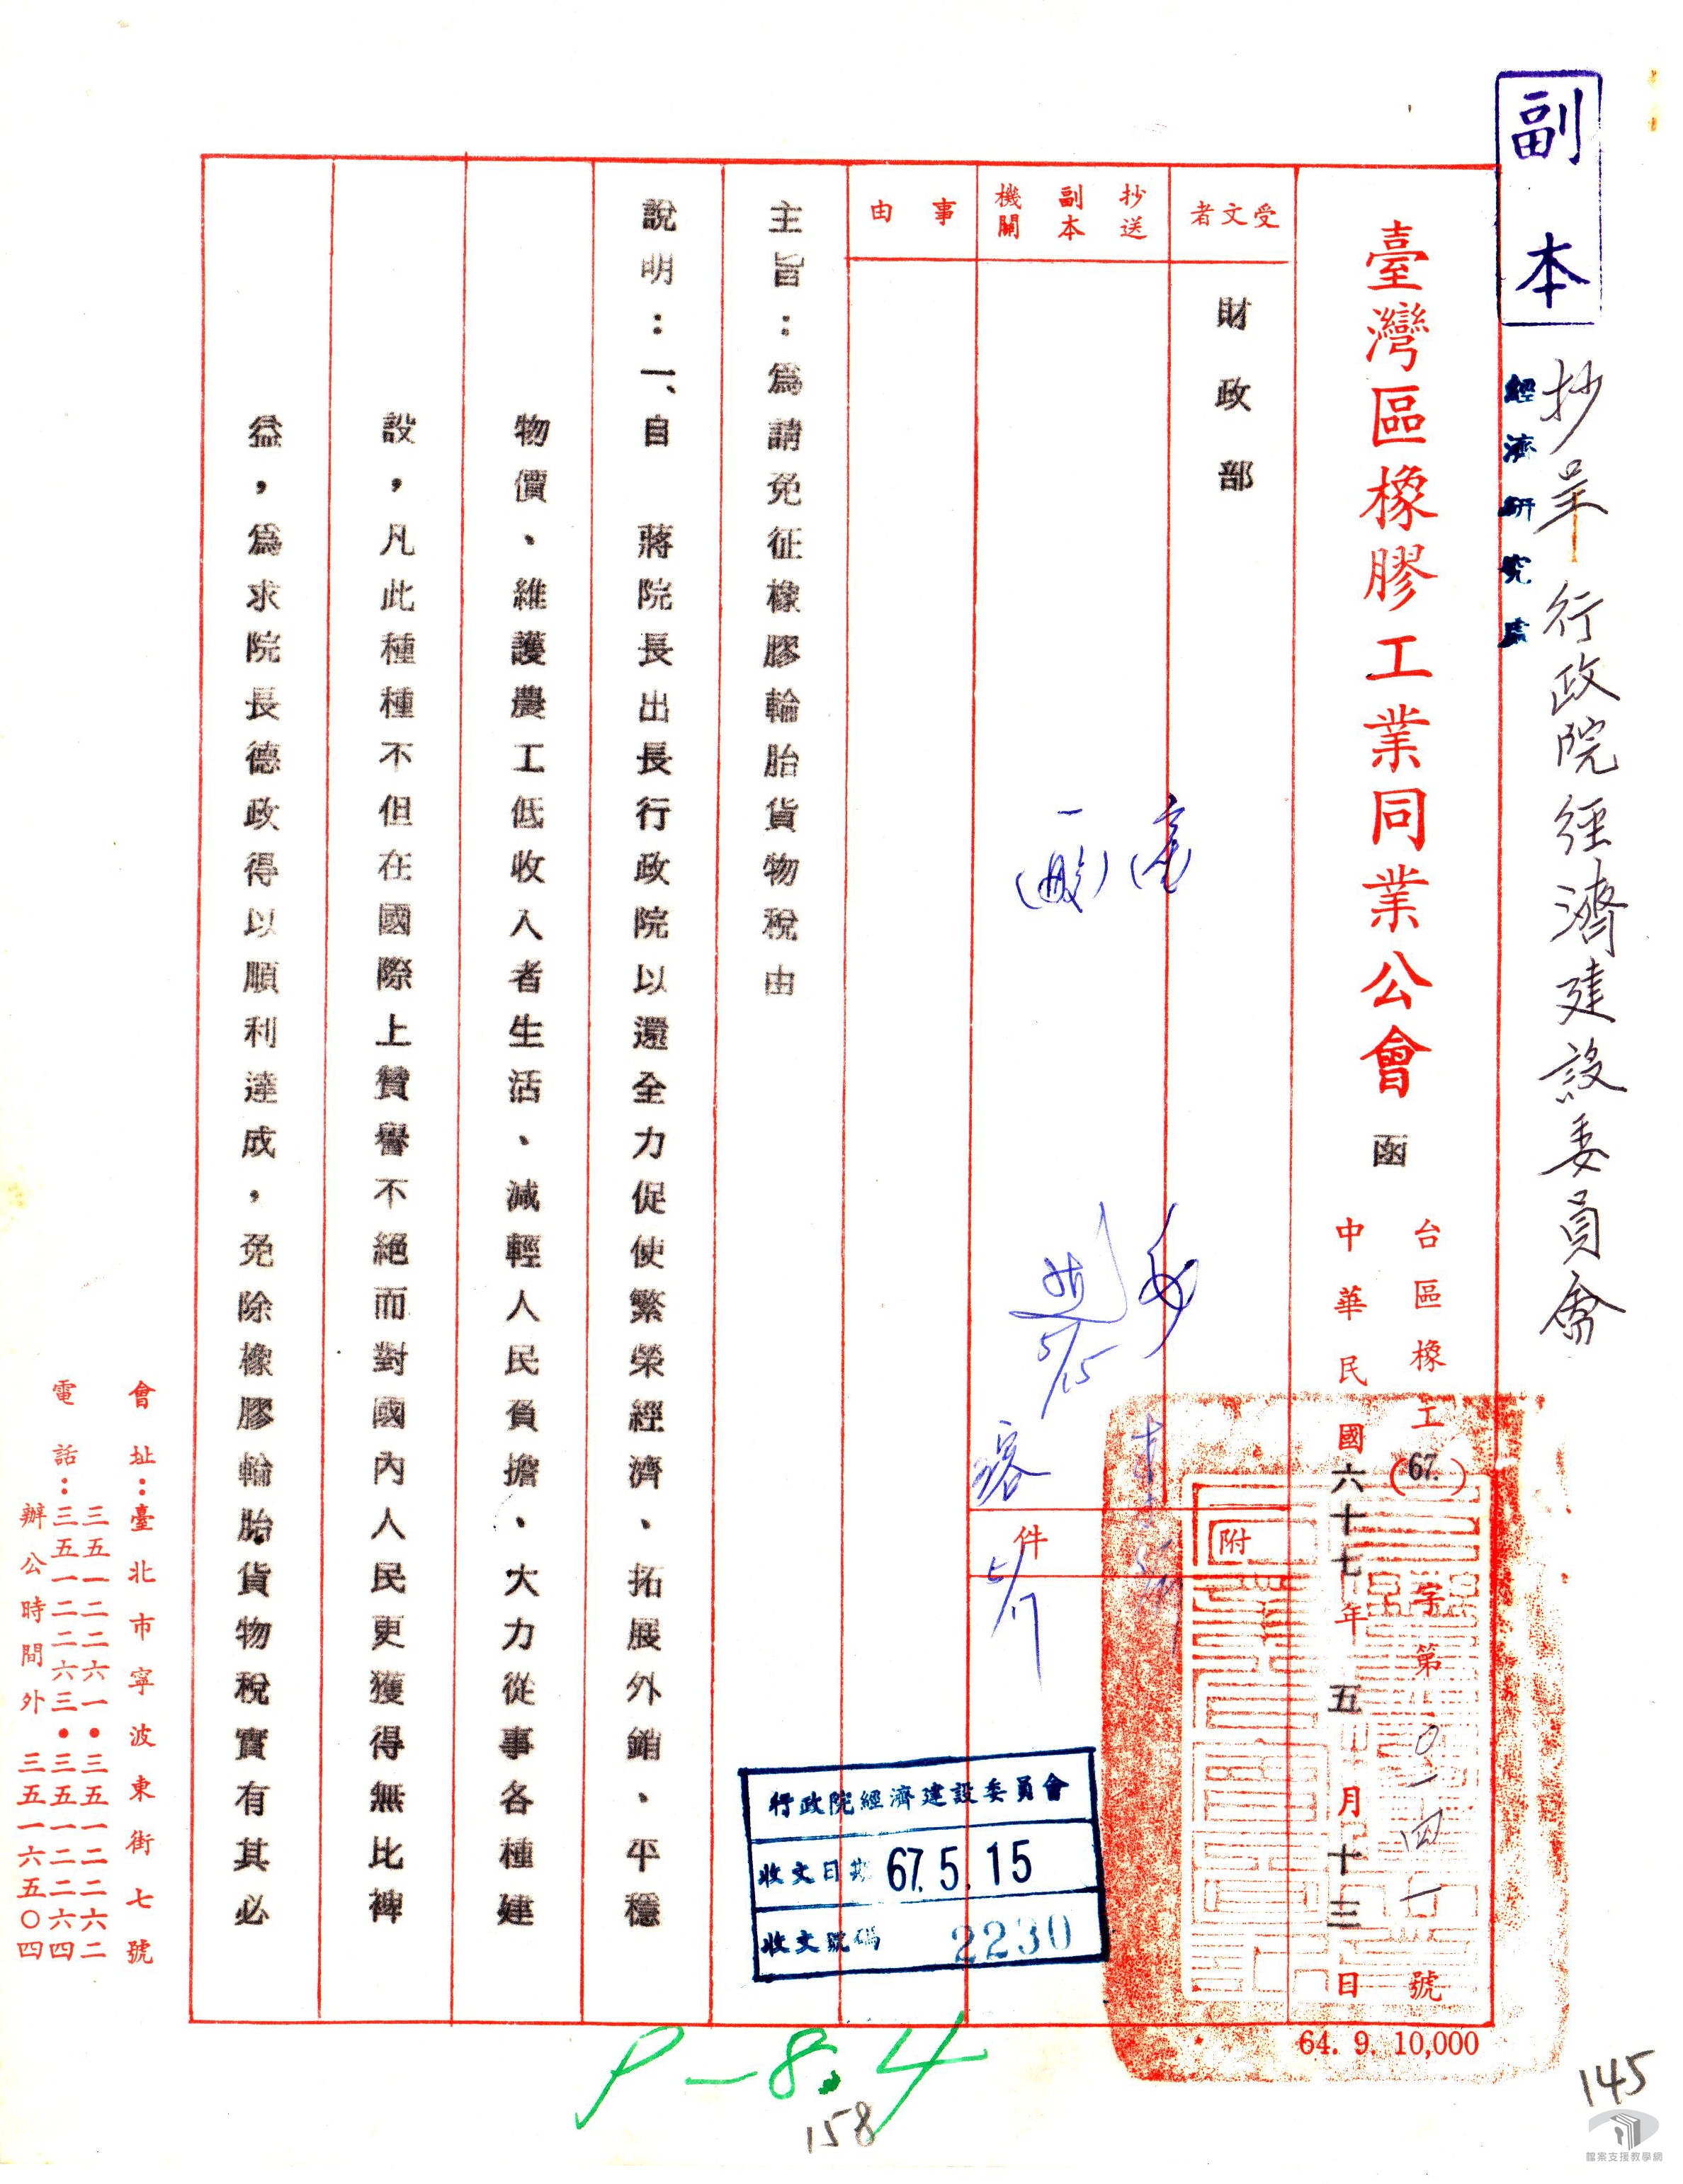 副本
抄呈行政院經濟建設委員會
經濟研究處
臺灣區橡膠工業同業公會 函
台區橡工(67.)字第〇一四一號
中華民國六十七年五月十三日
附件
受文者
財政部
抄送副本機關
事由
主旨：為請免征橡膠輪胎貨物稅由
說明：一、自 蔣院長出長行政院以還全力促使繁榮經濟、拓展外銷、平穩
物價、維護農工低收入者生活、減輕人民負擔、大力從事各種建
設，凡此種種不但在國際上贊譽不絕而對國內人民更獲得無比裨
益，為求院長德政得以順利達成，免除橡膠輪胎貨物稅實有其必
5/15
5/17
行政院經濟建設委員會
收文日期 67.5.15
收文號碼 2230
會址：臺北市寧波東街七號
電話：三五一二二六一•三五一二二六二
三五一二二六三•三五一二二六四
辦公時間外 三五一六五〇四
64. 9. 10,000
P-8.4
158
145
檔案支援教學網